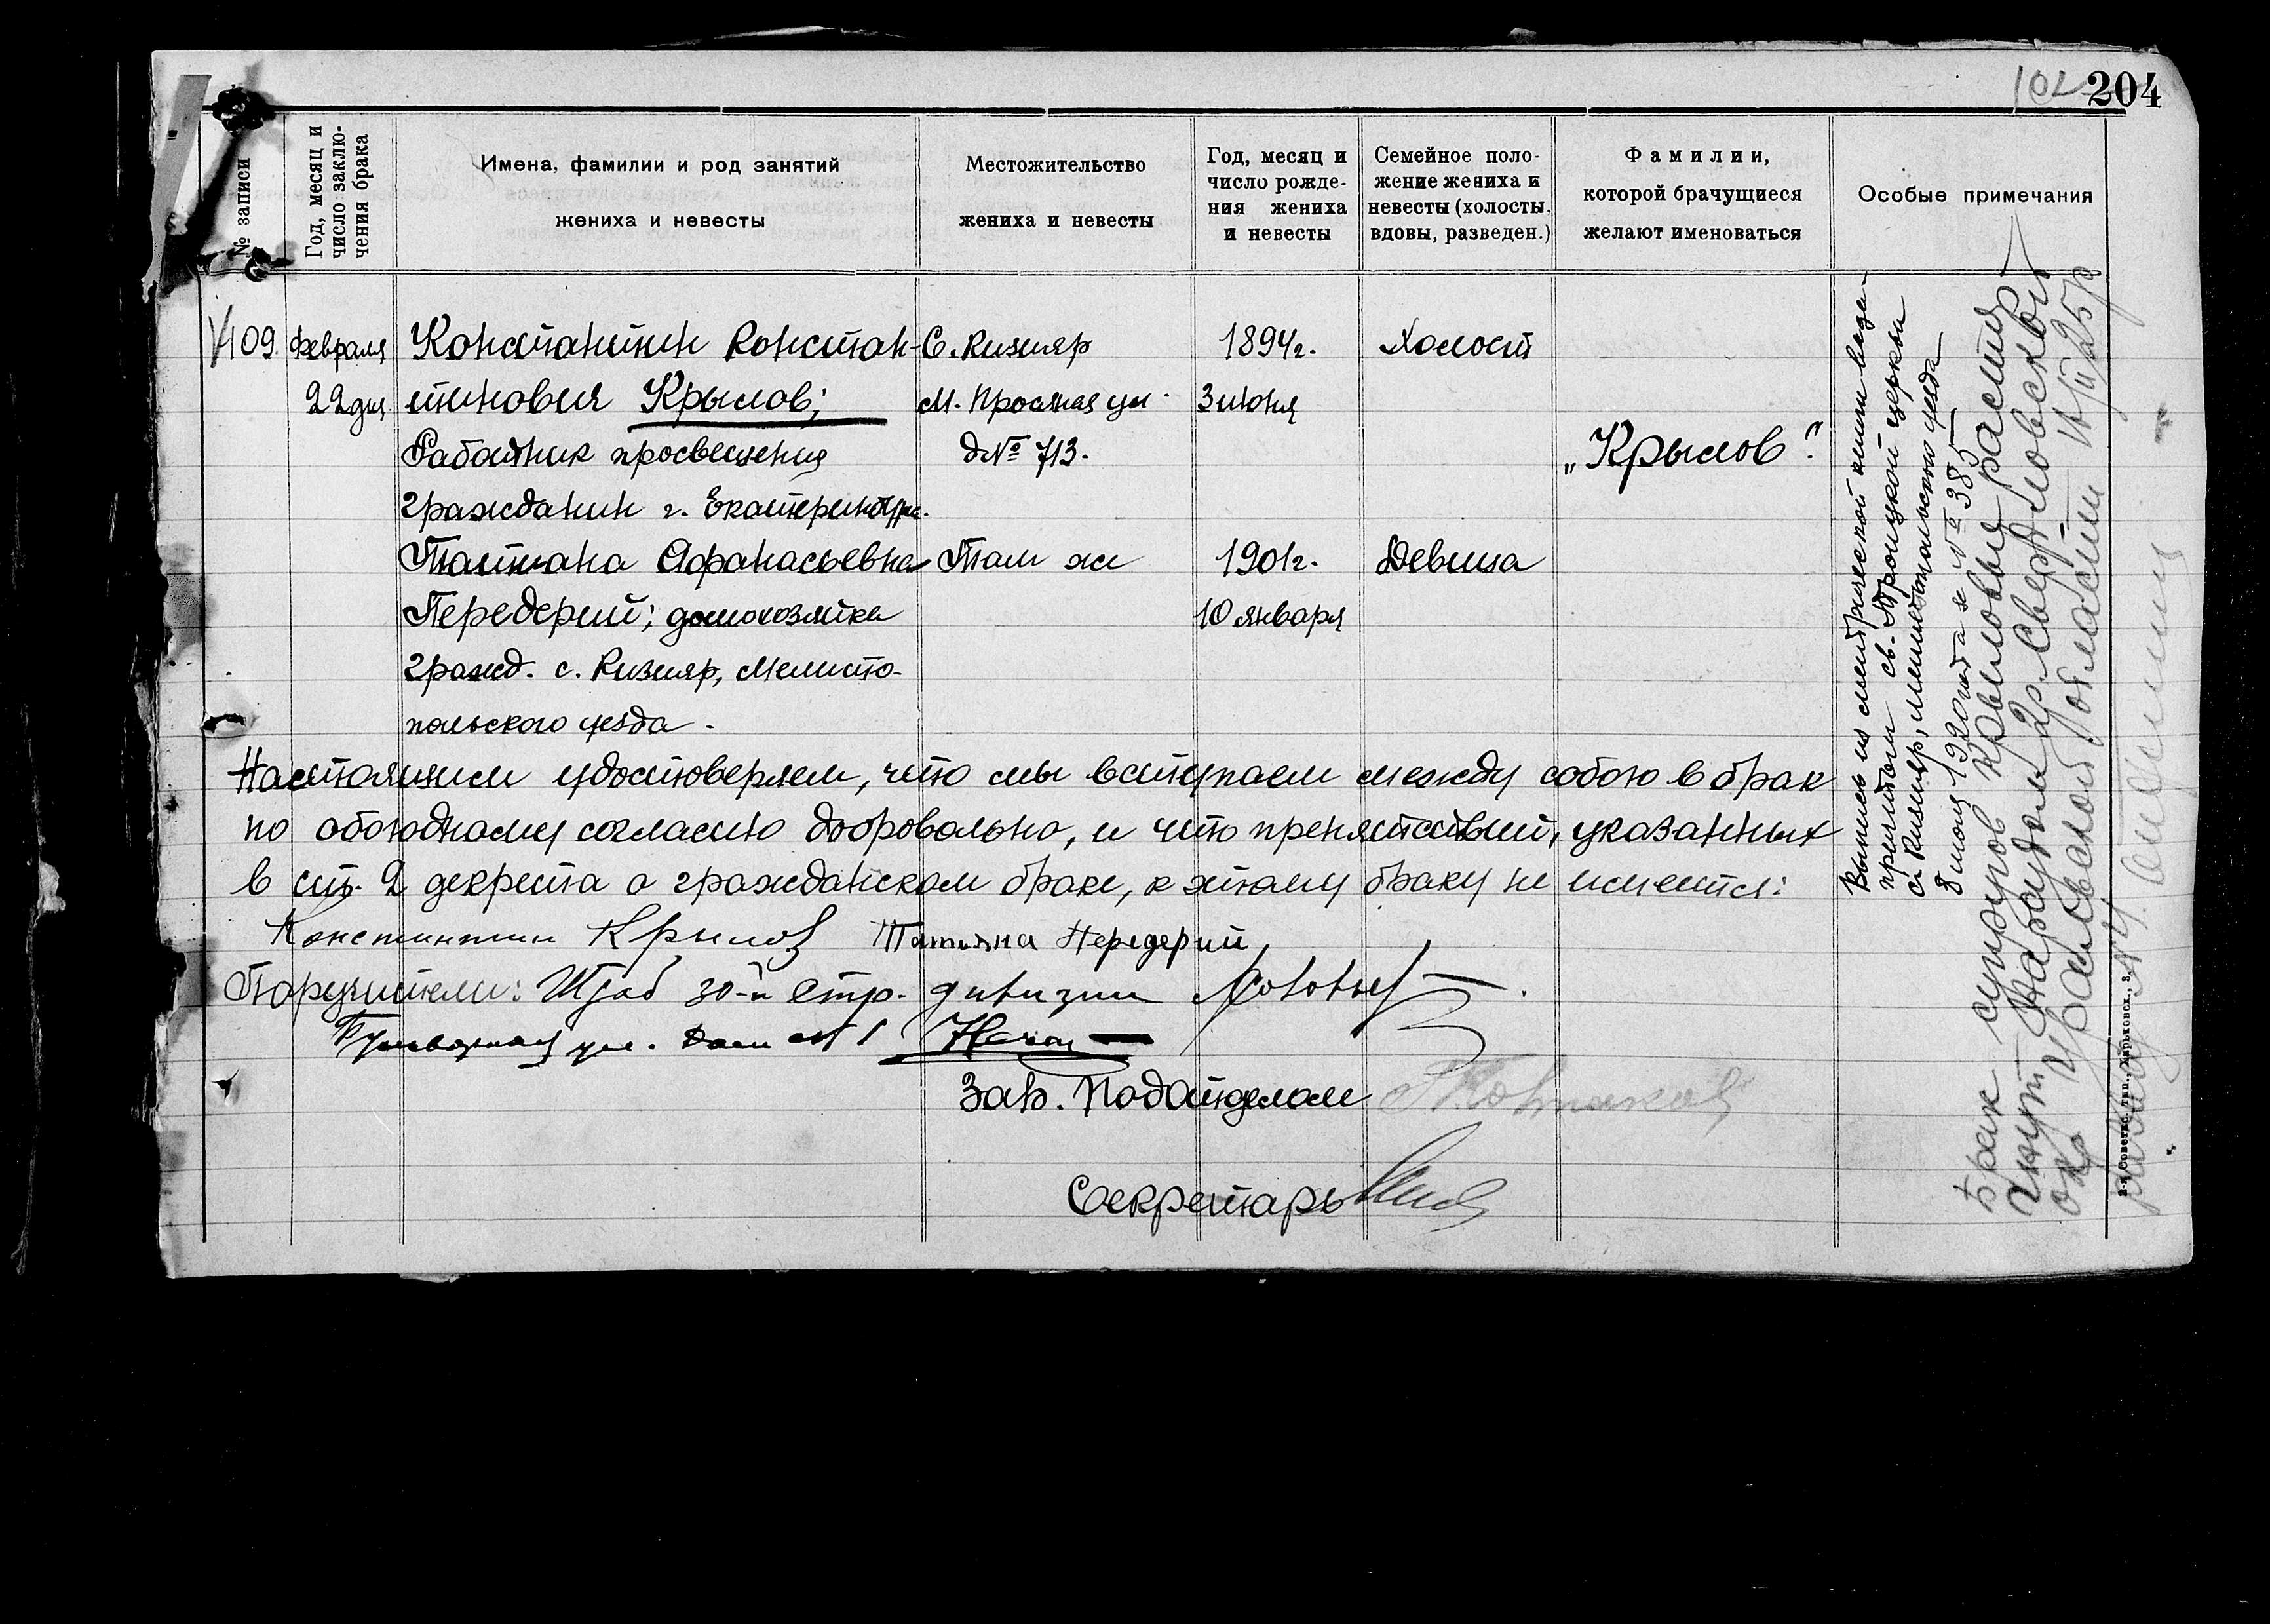 102
204
№ записи
Год, месяц и
число заклю-
чения брака
Имена, фамилии и род занятий
жениха и невесты
Местожительство
жениха и невесты
Год, месяц и
число рожде-
ния жениха
и невесты
Семейное поло-
жение жениха и
невесты (холосты,
вдовы, разведен.)
Фамилии,
которой брачущиеся
желают именоваться
Особые примечания
109
Февраля
22 дня
Константин Констан-
тинович Крылов;
Работник просвещения
гражданин г. Екатеринбург.
С. Кизияр
М. Просяная ул.
д № 713.
1894 г.
3 июня
Холост
„Крылов".
Татиана Афанасьевна
Передерий; домохозяйка
гражд. с. Кизияр, Мелито-
польского уезда.
Там же
1901 г.
10 января
Девица
Настоящим удостоверяем, что мы вступаем между собою в брак
по обоюдному согласию добровольно, и что препятствий, указанных
в ст. 2 декрета о гражданском браке, к этому браку не имеется:
Константин Крылов Татиана Передерий
Поручители: Штаб 30-й стр. дивизии
ул. Дом № 1
Зав. Подотделом
Секретарь
Выпись из метрической книги
св. Троицкой церкви
с. Кизияр, Мелитопольского уезда
8 1920 года за № 385
Брак супругов Крыловых расторг
нут Нарсудом гор. Свердловского
окр Уральской области
2-я Советск. тип. Харьковск., 8.